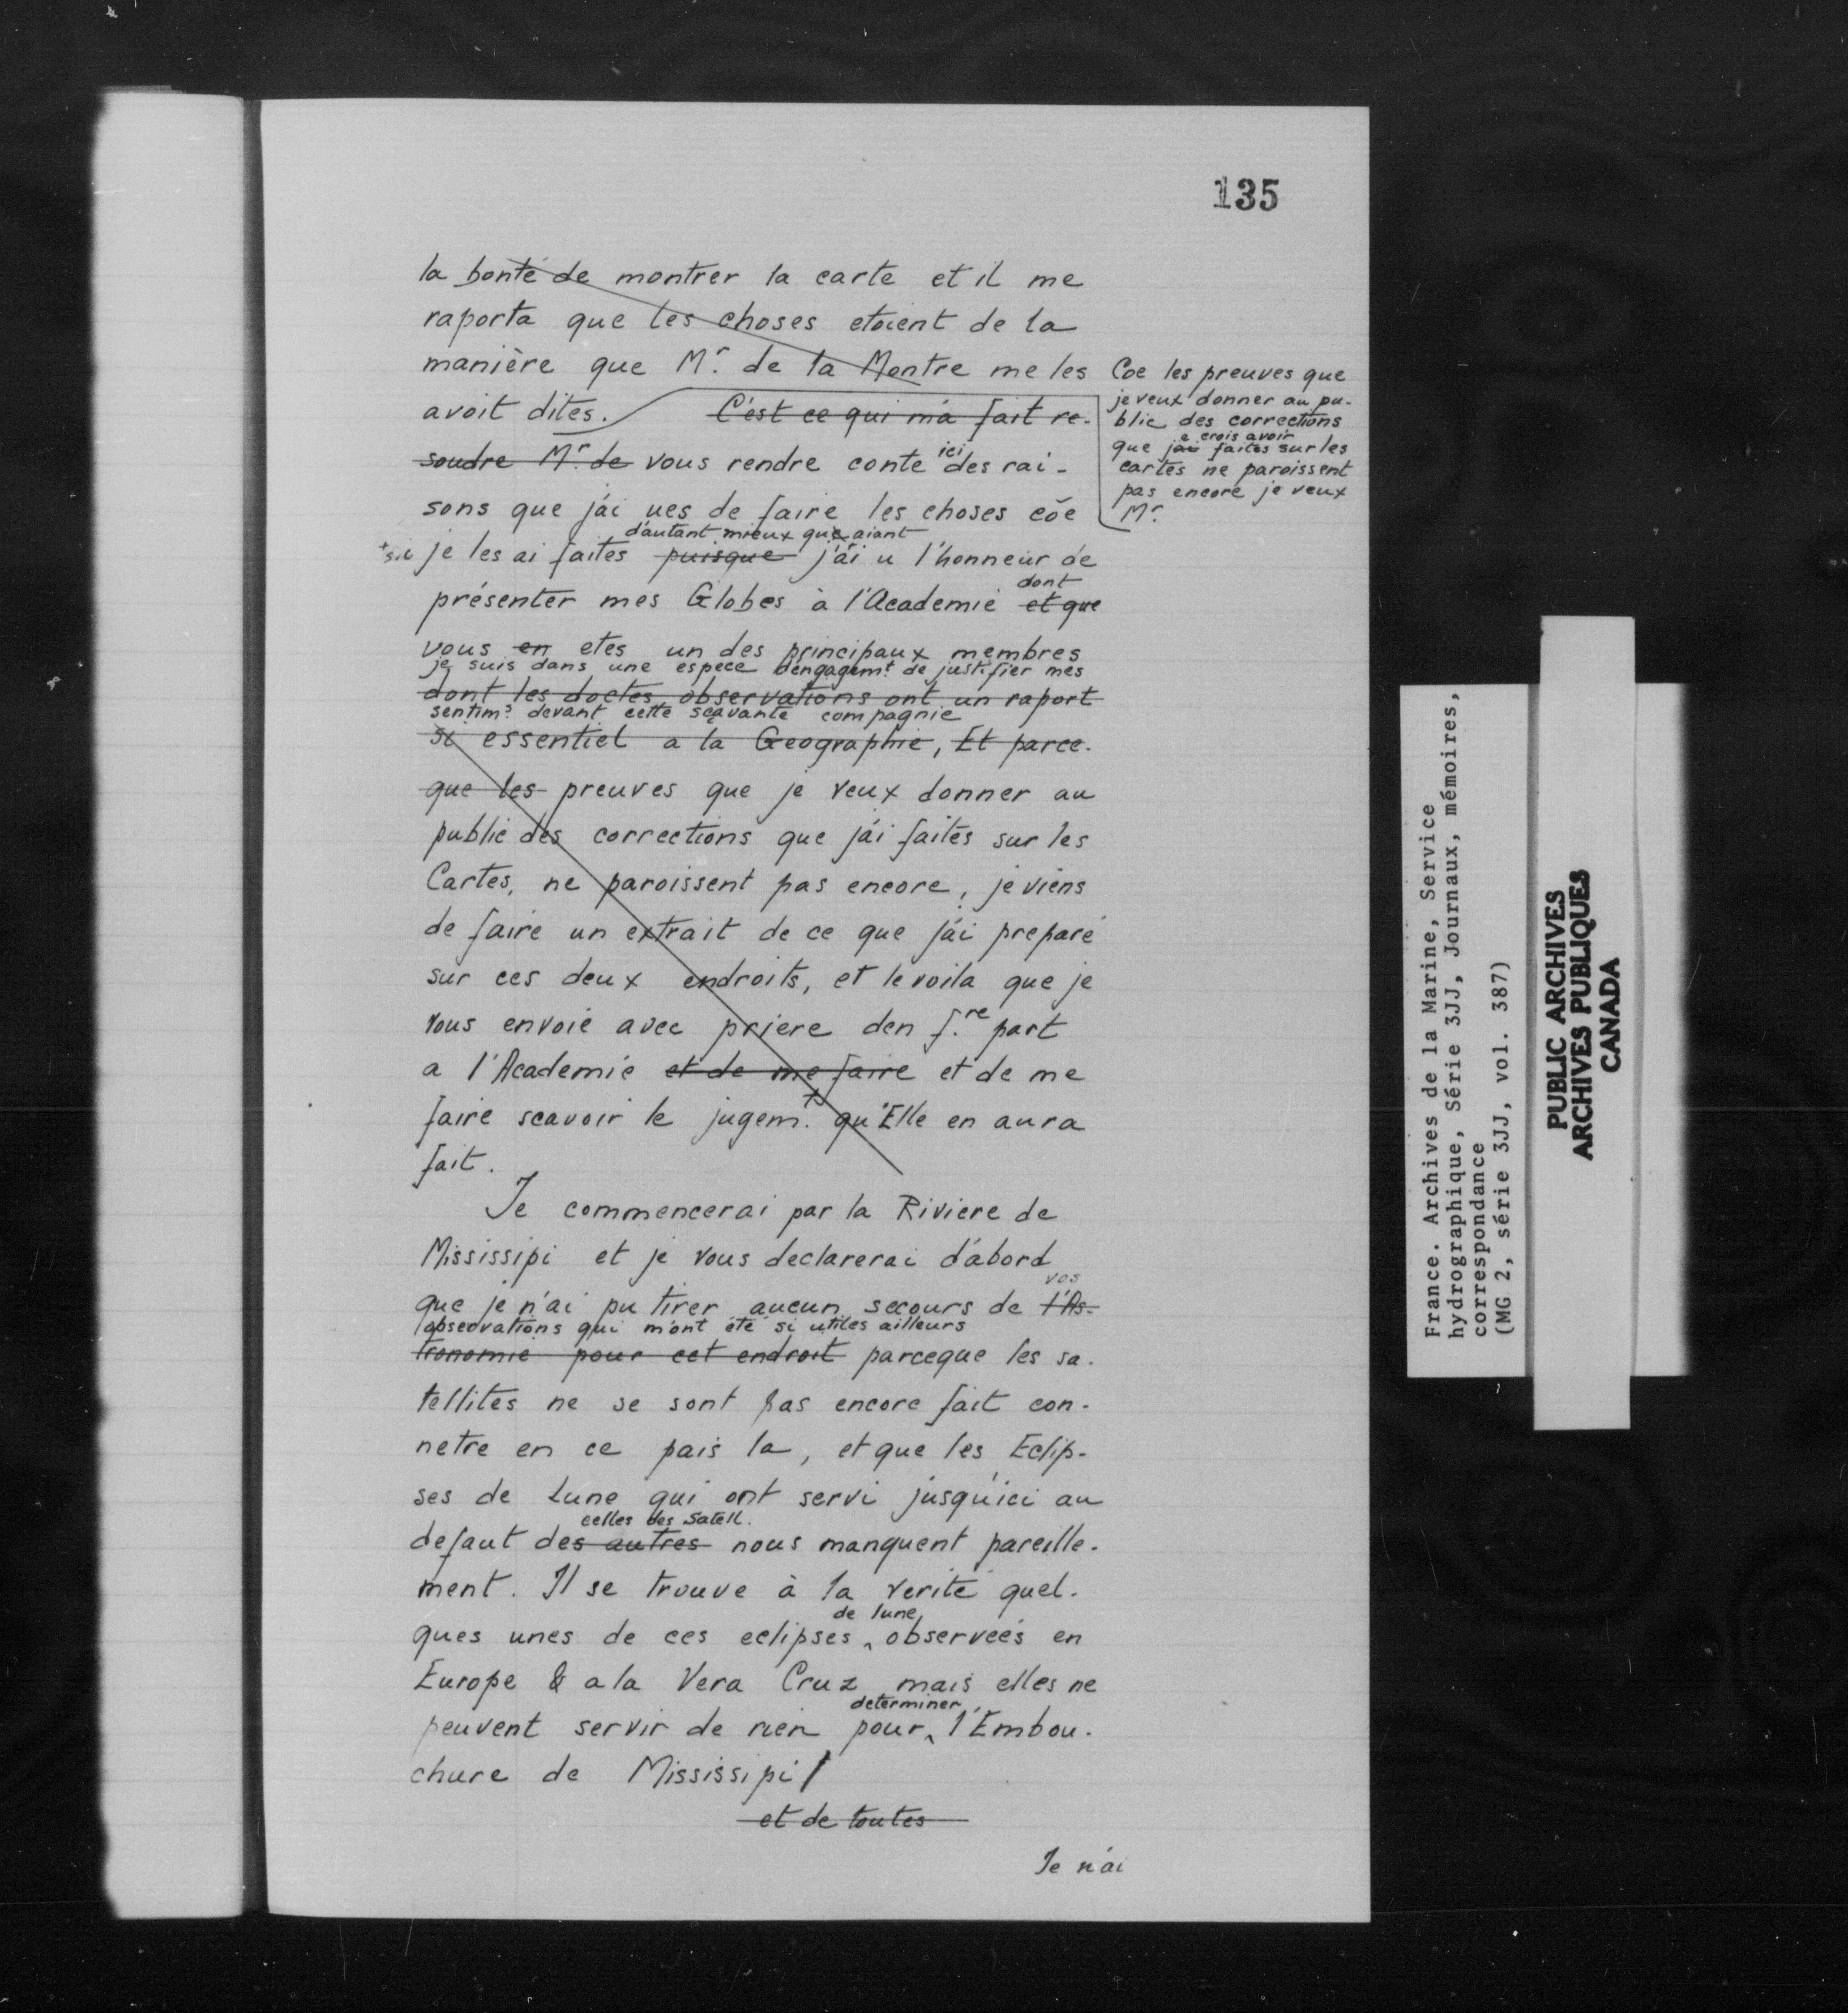 135
la bonté de montrer la carte et il me
raporta que les choses etoient de la
manière que Mr. de la Montre me les
avoit dites. C'est ce qui m'a fait re-
soudre Mr. de vous rendre conte ici des rai-
sons que j'ai ues de faire les choses cõe
+sic je les ai faites puisque d'autant mieux que aiant j'ai u l'honneur de
présenter mes Globes à l'Academie et que dont
vous en etes un des principaux membres
je suis dans une espece d'engagemt. de justifier mes
dont les doctes observations ont un raport
sentims. devant cette scavante compagnie
si essentiel a la Geographie, Et parce-
que les preuves que je veux donner au
public des corrections que j'ai faites sur les
Cartes, ne paroissent pas encore, je viens
de faire un extrait de ce que j'ai preparé
sur ces deux endroits, et le voila que je
vous envoie avec priere den f.re part
a l'Academie et de me faire et de me
faire scavoir le jugem.t qu'Elle en aura
fait.
Coe les preuves que
je veux donner au pu-
blic des corrections
que jai e crois avoir faites sur les
cartes ne paroissent
pas encore je veux
Mr.
Je commencerai par la Riviere de
Mississipi et je vous declarerai d'abord
que je n'ai pu tirer aucun secours de l'As- vos
observations qui m'ont été si utiles ailleurs
tronomie pour cet endroit parceque les sa-
tellites ne se sont pas encore fait con-
netre en ce pais la, et que les Eclip-
ses de Lune qui ont servi jusqu'ici au
defaut des autres celles des Satell. nous manquent pareille-
ment. Il se trouve à la verité quel-
ques unes de ces eclipses ^ de lune observées en
Europe & a la Vera Cruz mais elles ne
peuvent servir de rien pour ^ determiner l'Embou-
chure de Mississipi/
et de toutes
Je n'ai
France. Archives de la Marine, Service
hydrographique, Série 3JJ, Journaux, mémoires,
correspondance
(MG 2, série 3JJ, vol. 387)
PUBLIC ARCHIVES
ARCHIVES PUBLIQUES
CANADA